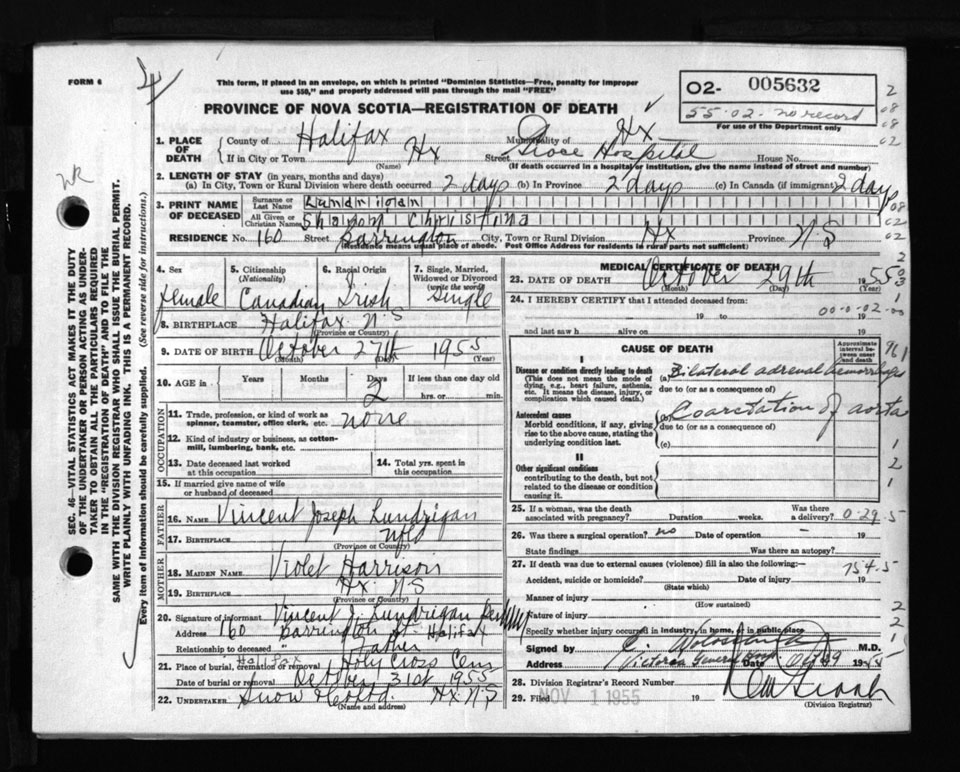 FORM 6
This form, if placed in an envelope, on which is printed "Dominion Statistics—Free, penalty for improper
use $50," and properly addressed will pass through the mail "FREE"
PROVINCE OF NOVA SCOTIA—REGISTRATION OF DEATH
02- 005632
55-02- no record
For use of the Department only
1. PLACE OF DEATH County of Halifax Municipality of Hx
If in City or Town Hx (Name) Street Grace Hospital House No.
(If death occurred in a hospital or institution, give the name instead of street and number)
2. LENGTH OF STAY (in years, months and days)
(a) In City, Town or Rural Division where death occurred 2 days (b) In Province 2 days (c) In Canada (if immigrant) 2 days
3. PRINT NAME OF DECEASED Surname or Last Name Lundrigan
All Given or Christian Names Sharon Christina
RESIDENCE No. 160 Street Barrington City, Town or Rural Division Hx Province N.S
(Residence means usual place of abode. Post Office Address for residents in rural parts not sufficient)
4. Sex female
5. Citizenship (Nationality) Canadian
6. Racial Origin Irish
7. Single, Married, Widowed or Divorced (write the word) Single
8. BIRTHPLACE Halifax N.S
(Province or Country)
9. DATE OF BIRTH October 27th 1955
(Month) (Day) (Year)
10. AGE Years Months Days 2 If less than one day old hrs. or min.
OCCUPATION
11. Trade, profession, or kind of work as
spinner, teamster, office clerk, etc. none
12. Kind of industry or business, as cotton-
mill, lumbering, bank, etc.
13. Date deceased last worked
at this occupation
14. Total yrs. spent in
this occupation
15. If married give name of wife
or husband of deceased
FATHER
16. NAME Vincent Joseph Lundrigan
17. BIRTHPLACE Nfld
(Province or Country)
MOTHER
18. MAIDEN NAME Violet Harrison
19. BIRTHPLACE Hx. N.S
(Province or Country)
20. Signature of informant Vincent J. Lundrigan
Address 160 Barrington St. Halifax
Relationship to deceased Father
21. Place of burial, cremation or removal Halifax Holy Cross Cem
Date of burial or removal October 31st 1955
22. UNDERTAKER Snow & Co Ltd. Hx. N.S
(Name and address)
MEDICAL CERTIFICATE OF DEATH
23. DATE OF DEATH October 29th 1955
(Month) (Day)
24. I HEREBY CERTIFY that I attended deceased from:
19 to 19
and last saw h alive on 19
CAUSE OF DEATH
Approximate interval between onset and death
I
Disease or condition directly leading to death
(This does not mean the mode of dying, e.g., heart failure, asthenia, etc. It means the disease, injury, or complication which caused death.)
(a) Bilateral adrenal hemorrhage
due to (or as a consequence of)
Antecedent causes
Morbid conditions, if any, giving rise to the above cause, stating the underlying condition last.
Coarctation of aorta
due to (or as a consequence of)
(c)
II
Other significant conditions
contributing to the death, but not related to the disease or condition causing it.
25. If a woman, was the death
associated with pregnancy? Duration weeks. Was there a delivery? 0-29-5
26. Was there a surgical operation? no Date of operation 19
State findings Was there an autopsy?
27. If death was due to external causes (violence) fill in also the following:—
Accident, suicide or homicide? Date of injury 19
(State which)
Manner of injury
(How sustained)
Nature of injury
Specify whether injury occurred in industry, in home, or in public place
Signed by M.D.
Address Victoria General Hosp Date Oct 29 19
28. Division Registrar's Record Number
29. Filed NOV 1 1955 19
(Division Registrar)
SEC. 46—VITAL STATISTICS ACT MAKES IT THE DUTY
OF THE UNDERTAKER OR PERSON ACTING AS UNDER-
TAKER TO OBTAIN ALL THE PARTICULARS REQUIRED
IN THE "REGISTRATION OF DEATH" AND TO FILE THE
SAME WITH THE DIVISION REGISTRAR WHO SHALL ISSUE THE BURIAL PERMIT.
WRITE PLAINLY WITH UNFADING INK. THIS IS A PERMANENT RECORD.
Every item of information should be carefully supplied. (See reverse side for instructions.)